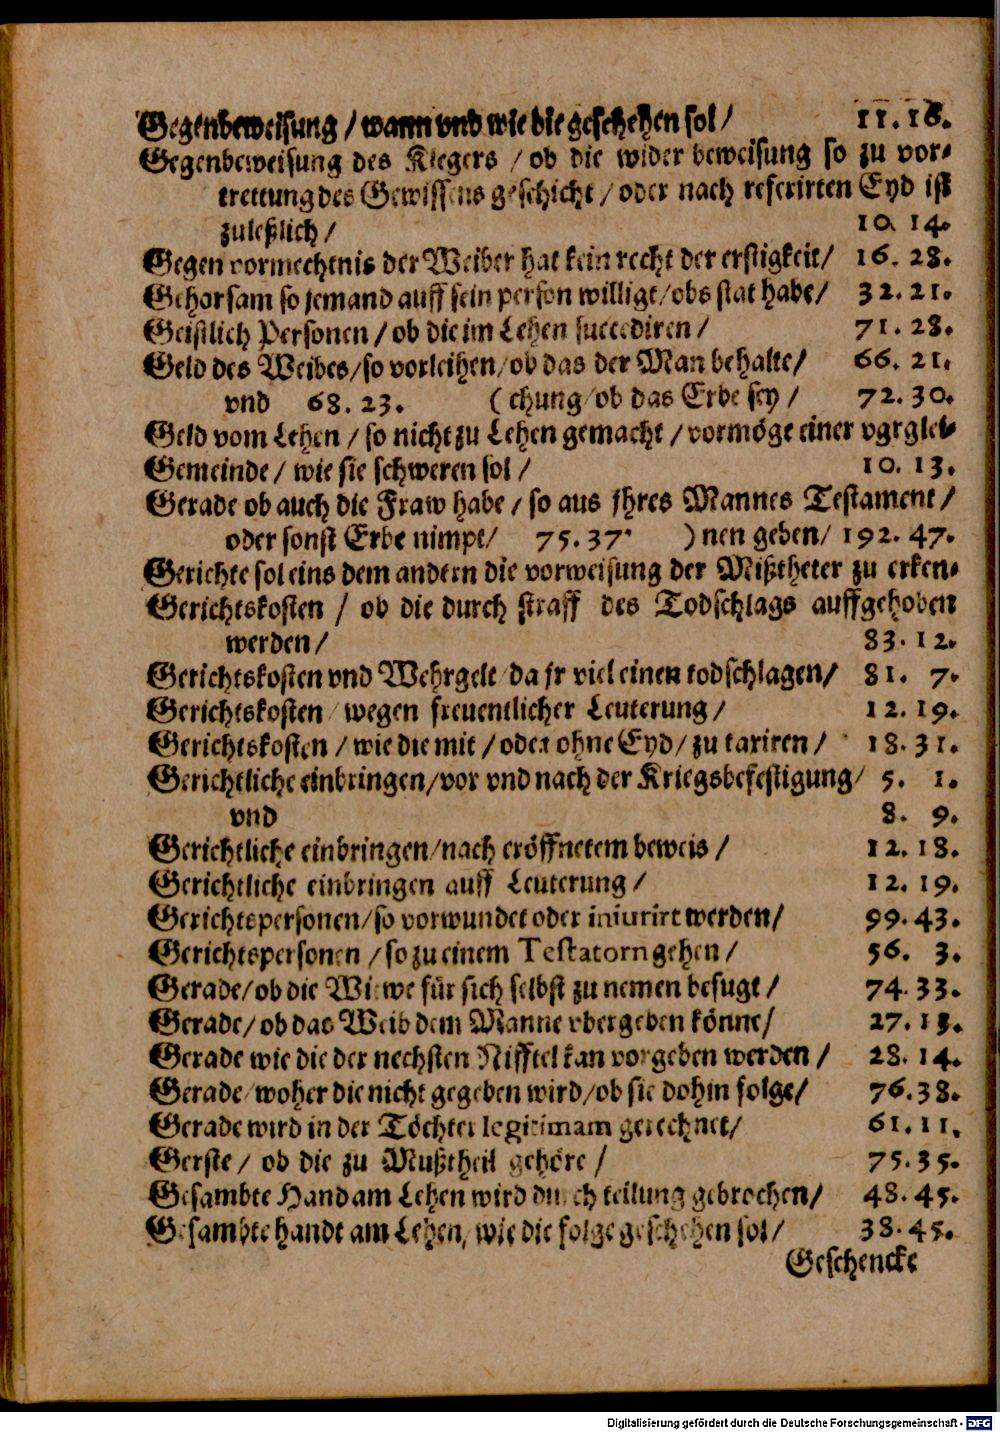 Gegenbeweisung / wann vnd wie die geschehen sol / 11. 16.
Gegenbeweisung des Klegers / ob die wider beweisung so zu vor-
trettung des Gewissens geschicht / oder nach referirten Eyd ist
zuleßlich / 10. 14.
Gegen vormechtnis der Weiber hat kein recht der erstigkeit / 16. 28.
Gehorsam so jemand auff sein person willigt / obs stat habe / 32. 21.
Geistlich Personen / ob die im Lehen succediren / 71. 28.
Geld des Weibes / so vorleihen / ob das der Man behalte / 66. 21.
vnd 68. 23. ( chung / ob das Erbe sey / 72. 30.
Geld vom Lehen / so nicht zu Lehen gemacht / vormöge einer vgrglei-
Gemeinde / wie sie schweren sol / 10. 13.
Gerade ob auch die Fraw habe / so aus jhres Mannes Testament /
oder sonst Erbe nimpt / 75. 37. ) nen geben / 192. 47.
Gerichte sol eins dem andern die vorweisung der Mißtheter zu erken-
Gerichtskosten / ob die durch straff des Todschlags auffgehoben
werden / 83. 12.
Gerichtskosten vnd Wehrgelt / da jr viel einen todschlagen / 81. 7.
Gerichtskosten / wegen freuentlicher Leuterung / 12. 19.
Gerichtskosten / wie die mit / oder ohne Eyd / zu taxiren / 18. 31.
Gerichtliche einbringen / vor vnd nach der Kriegsbefestigung / 5. 1.
vnd 8. 9.
Gerichtliche einbringen / nach eröffnetem beweis / 12. 18.
Gerichtliche einbringen auff Leuterung / 12. 19.
Gerichtspersonen / so vorwundet oder iniurirt werden / 99. 43.
Gerichtspersonen / so zu einem Testatorn gehen / 56. 3.
Gerade / ob die Witwe für sich selbst zu nemen befugt / 74. 33.
Gerade / ob das Weib dem Manne vbergeben könne / 27. 13.
Gerade wie die der nechsten Nifftel kan vorgeben werden / 28. 14.
Gerade / woher die nicht gegeben wird / ob sie dohin folge / 76. 38.
Gerade wird in der Töchter legitimam gerechnet / 61. 11.
Gerste / ob die zu Mußtheil gehöre / 75. 35.
Gesambte Hand am Lehen wird durch teilung gebrochen / 48. 45.
Gesambte handt am Lehen, wie die folge geschehen sol / 38. 45.
Geschencke
Digitalisierung gefördert durch die Deutsche Forschungsgemeinschaft - DFG